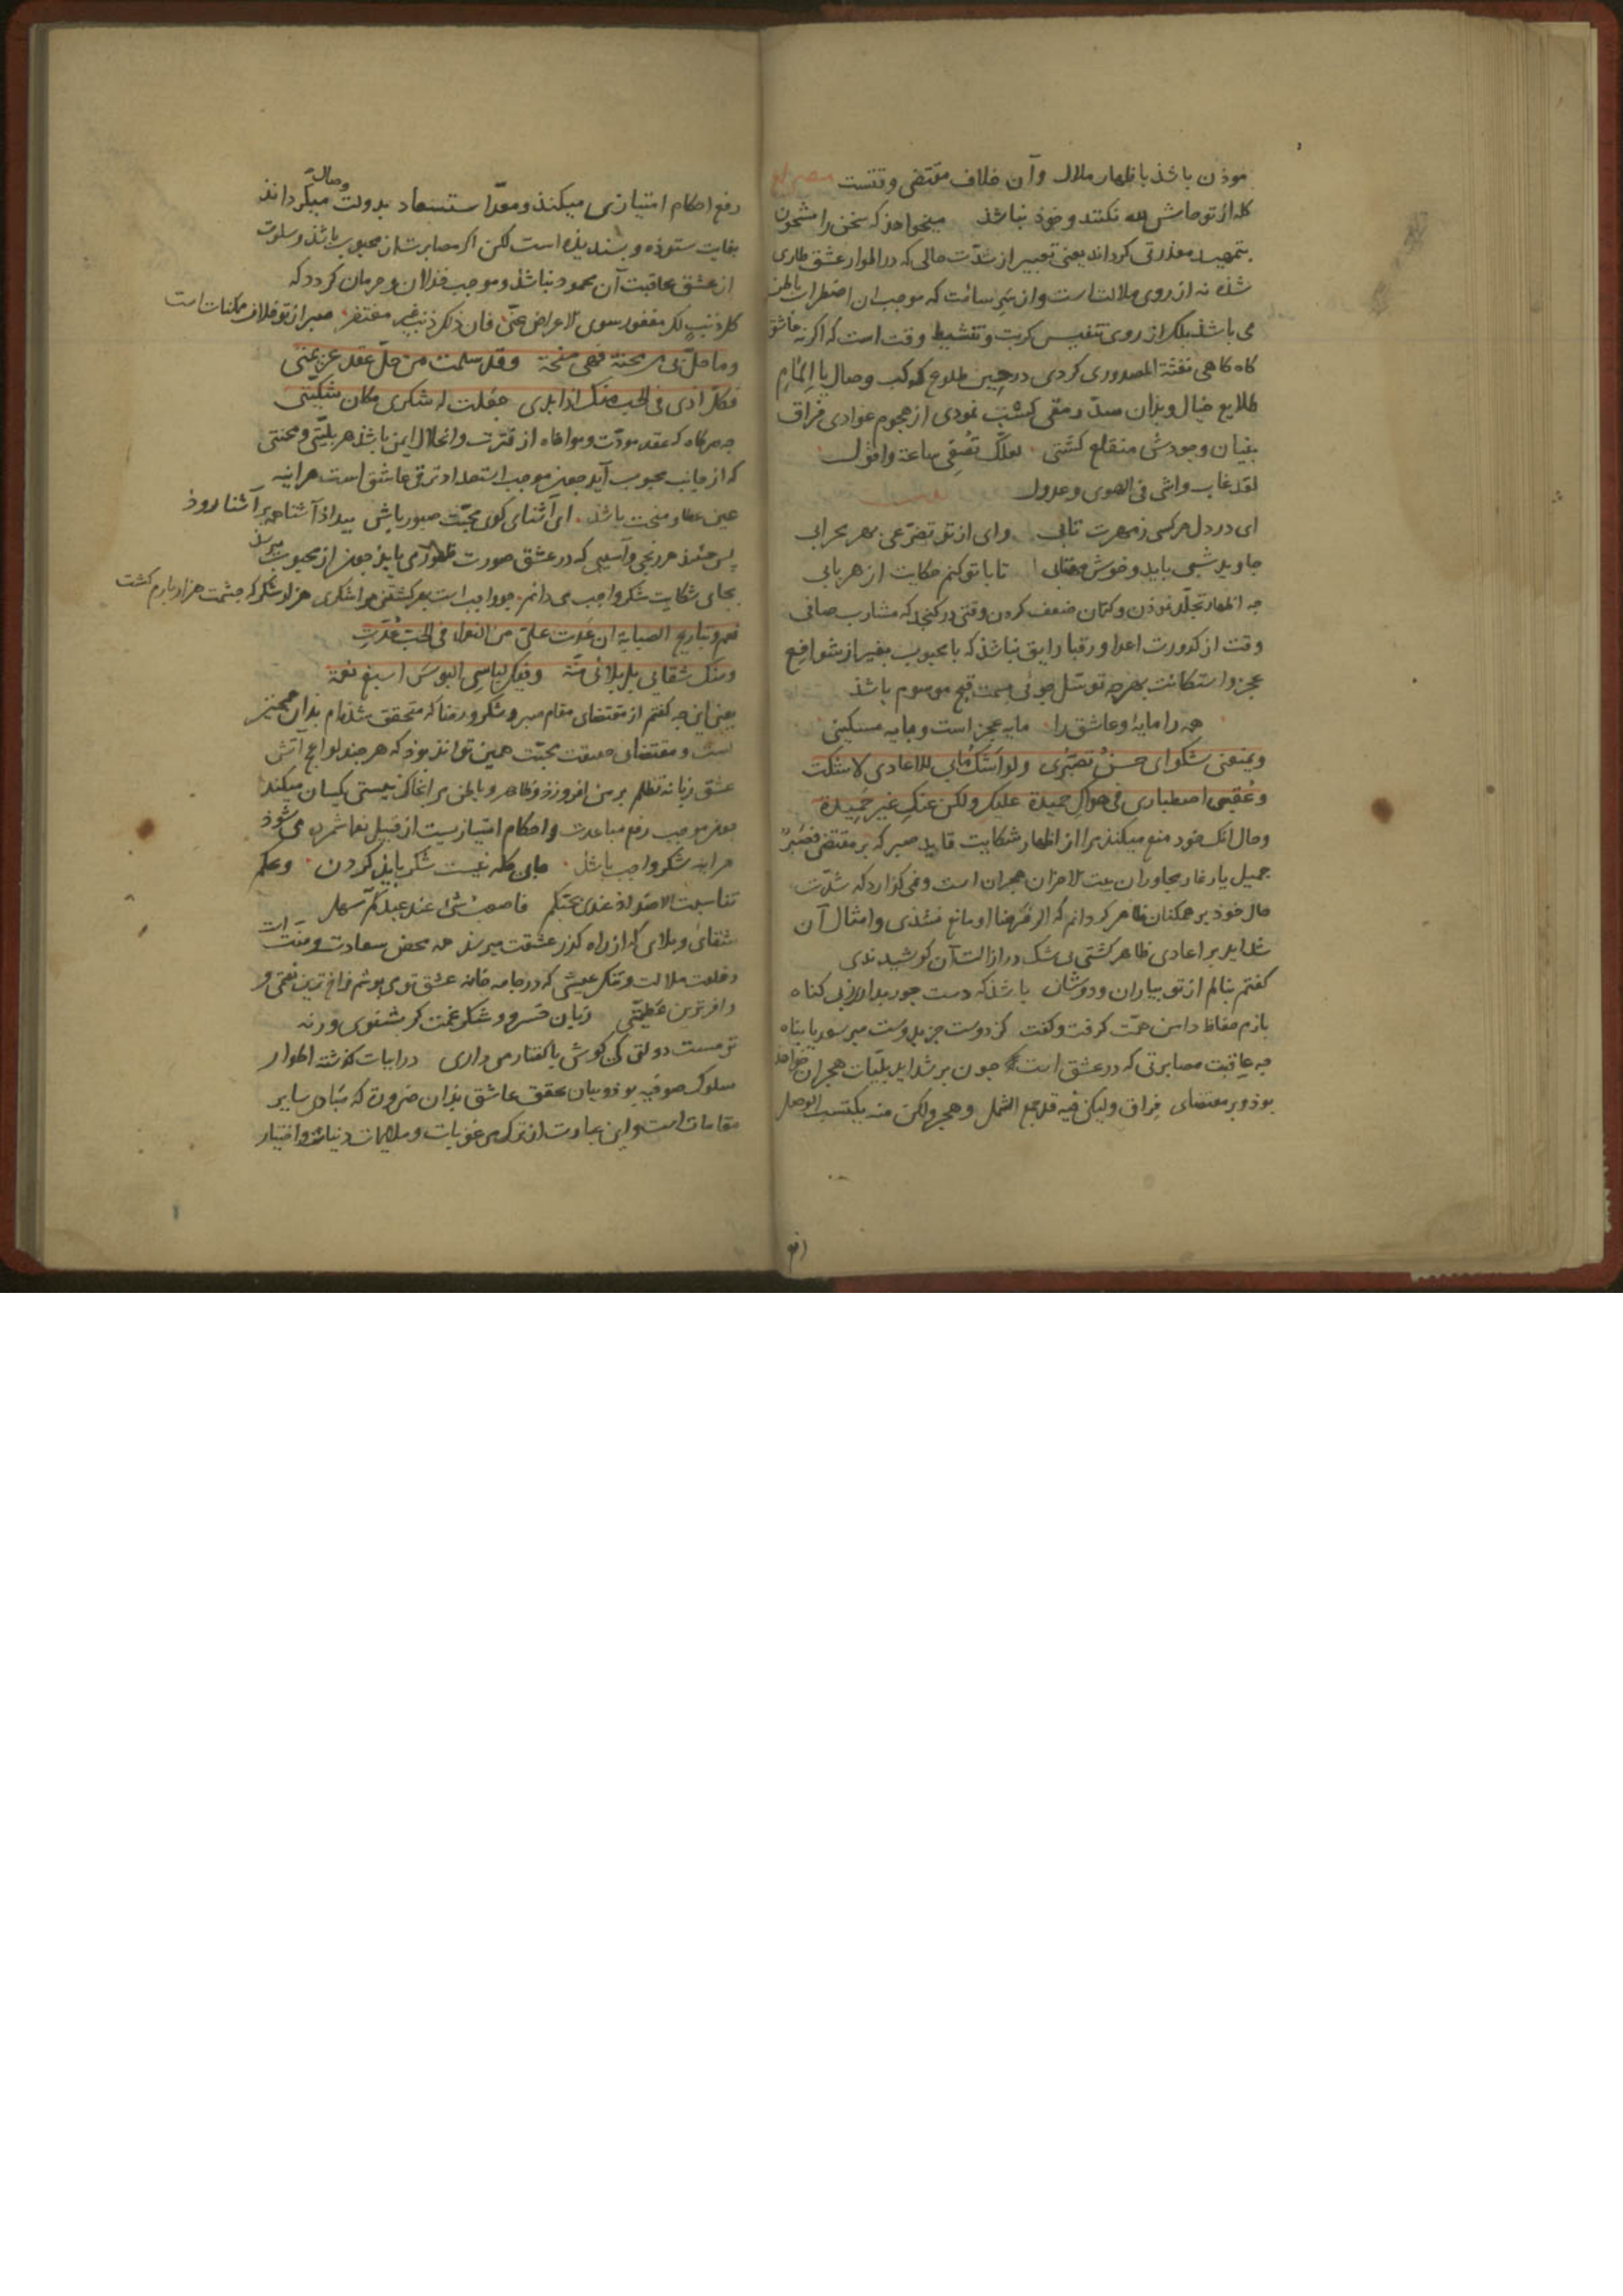 موذن باشذ باظهار ملال و آن خلاف مقتضی وقتست مصراع
کله از تو حاش لله نکنند و خوذ نباشذ میخواهذ که سخن را مشحون
بتمهید معذرتی کرداند یعنی تعبیر از شدّت حالی که در اطوار عشق طاری
شذه نه از روی ملالت است و از سَرِ سآمت که موجب ان اضطراب باطن
می باشذ بلکه از روی تنفیس کربت و تنشیط وقت است که اکر نه عاشق
کاه کاهی نفثة المصدوری کردی در حینِ طلوع کوکب وصال یا اِلمامِ
طلایع خیال و بذان سدّ رمقی کشت نمودی از هجوم عوادی فراق
بنیان وجودش منقلع کشتی لعلّک تصغی ساعة واقول
لقد غاب واشٍ فی الهوی وعذول
ای در دل هر کسی ز مهرت تابی وای از تو تضرّعی بهر محرابی
جاوید شبی باید و خوش مهتابی تا با تو کنم حکایت از هر بابی
جه اظهار تجلّد نموذن و کتمان ضعف کردن وقتی درکنجد که مشارب صافی
وقت از کدورت اعدا و رقبا رایق نباشذ که با محبوب بغیر از شوافع
عجز و استکانت بهرچه توسّل جوئی بسمت قبح موسوم باشذ
همه را مایۀ و عاشق را مایه عجز است و مایه مسکینی
ویمنعنی شکوای حسنُ تصبّری ولو اَشکُ مابی للاعادی لاشکت
وعُقبی اصطباری فی هواکِ حمیدة علیک ولکن عنکِ غیر حَمیدة
و حال انک خود منع میکند مرا از اظهار شکایت قاید صبر که بر مقتضی فَصَبْرٌ
جمیل یار غار مجاوران بیت الاحزان هجران است و نمی کذارد که شدّت
حال خوذ بر همکنان ظاهر کردانم که اکر نه رضا او مانع شذی و امثال آن
شداید بر اعادی ظاهر کشتی بی شک در ازالت آن کوشیدندی
کفتم بنالم از تو بیاران و دوستان باشذ که دست جور بداری ز بی کناه
بازم حفاظ دامن همّت کرفت و کفت کز دوست جز بدوست مبر سعدیا پناه
جه عاقبت مصابرتی که در عشق است جون بر شداید بلیّات هجران خواهد
بوذ و بر مقتضای فراق ولیکن فیه قد جمع الشمل وهجر ولکن منه یکتسب الوصل
رفع احکام امتیازی میکند و معدّ استسعاد بدولت وصال میکرداند
بغایت ستوده و بسندیذه است لکن اکر مصابرت از محبوب باشذ و سلوت
از عشق عاقبت آن محمود نباشذ و موجب خذلان و حرمان کردد که
کل ذنب لک مغفور سوی الاعراض عنّی فان ذلک ذنب غیر مغتفر صبر از تو خلاف ممکنات است
وما حلّ بی من محنة فهی منحة وقد سلمت من حلّ عقد عزیمتی
فکل اذی فی الحب منک اذا بدی جعلت له شکری مکان شکیّتی
جه هرکاه که عقد مودّت و مواخاه از فترت و انحلال ایمن باشذ هر بلیّتی و محنتی
که از جانب محبوب آید جون موجب استعداد ترقی عاشق است هراینه
عین عطا و منحت باشذ ای آشنای کوی محبّت صبور باش بیداد آشنا همه بر آشنا روذ
پس حینئذ هر رنجی و آسیبی که در عشق صورت ظهور می یابذ جون از محبوب میرسذ
بجای شکایت شکر واجب می دانم جو واجب است بهر کشتنی مرا شکری هزار شکر که چشمت هزار بارم کشت
نعم وتباریح الصبابة ان عَدَت علیّ من النعماء فی الحب عُدّتِ
ومنک شقائی بل بلائی منّة وفیک لباسی البوس اسبغ نعمة
یعنی این جه کفتم از مقتضای مقام صبر و شکر و رضا که متحقق شذه ام بذان همجنین
است و مقتضای حقیقت محبّت همین تواند بوذ که هرجند لواعج آتش
عشق زبانه تظلم بر من افروزد و ظاهر و باطن مرا بخاک نیستی یکسان میکند
جون موجب رفع مباعدت و احکام امتیازیست از قبیل نعما شمرده می شوذ
هراینه شکر واجب باشذ جای کله نیست شکر باید کردن وعلم
شقائی و بلای که از راه کذر عشقت میرسذ همه محض سعادت و منّت است
و خلعت ملالت و تنک عیشی که در جامه خانه عشق تو می پوشم فراخ ترین نعمتی و
وافرترین عطیّتی زبان خسرو و شکر غمت کر بشنوی ور نه
تو مست دولتی کی کوش با کفتار من داری در ابیات کذشته اطوار
سلوک صوفیه بوذ و بیان تحقق عاشق بذان ضرورة که مبادی سایر
مقامات است و این عبارت از ترک مرغوبات و ملایمات دنیاست و اختیار